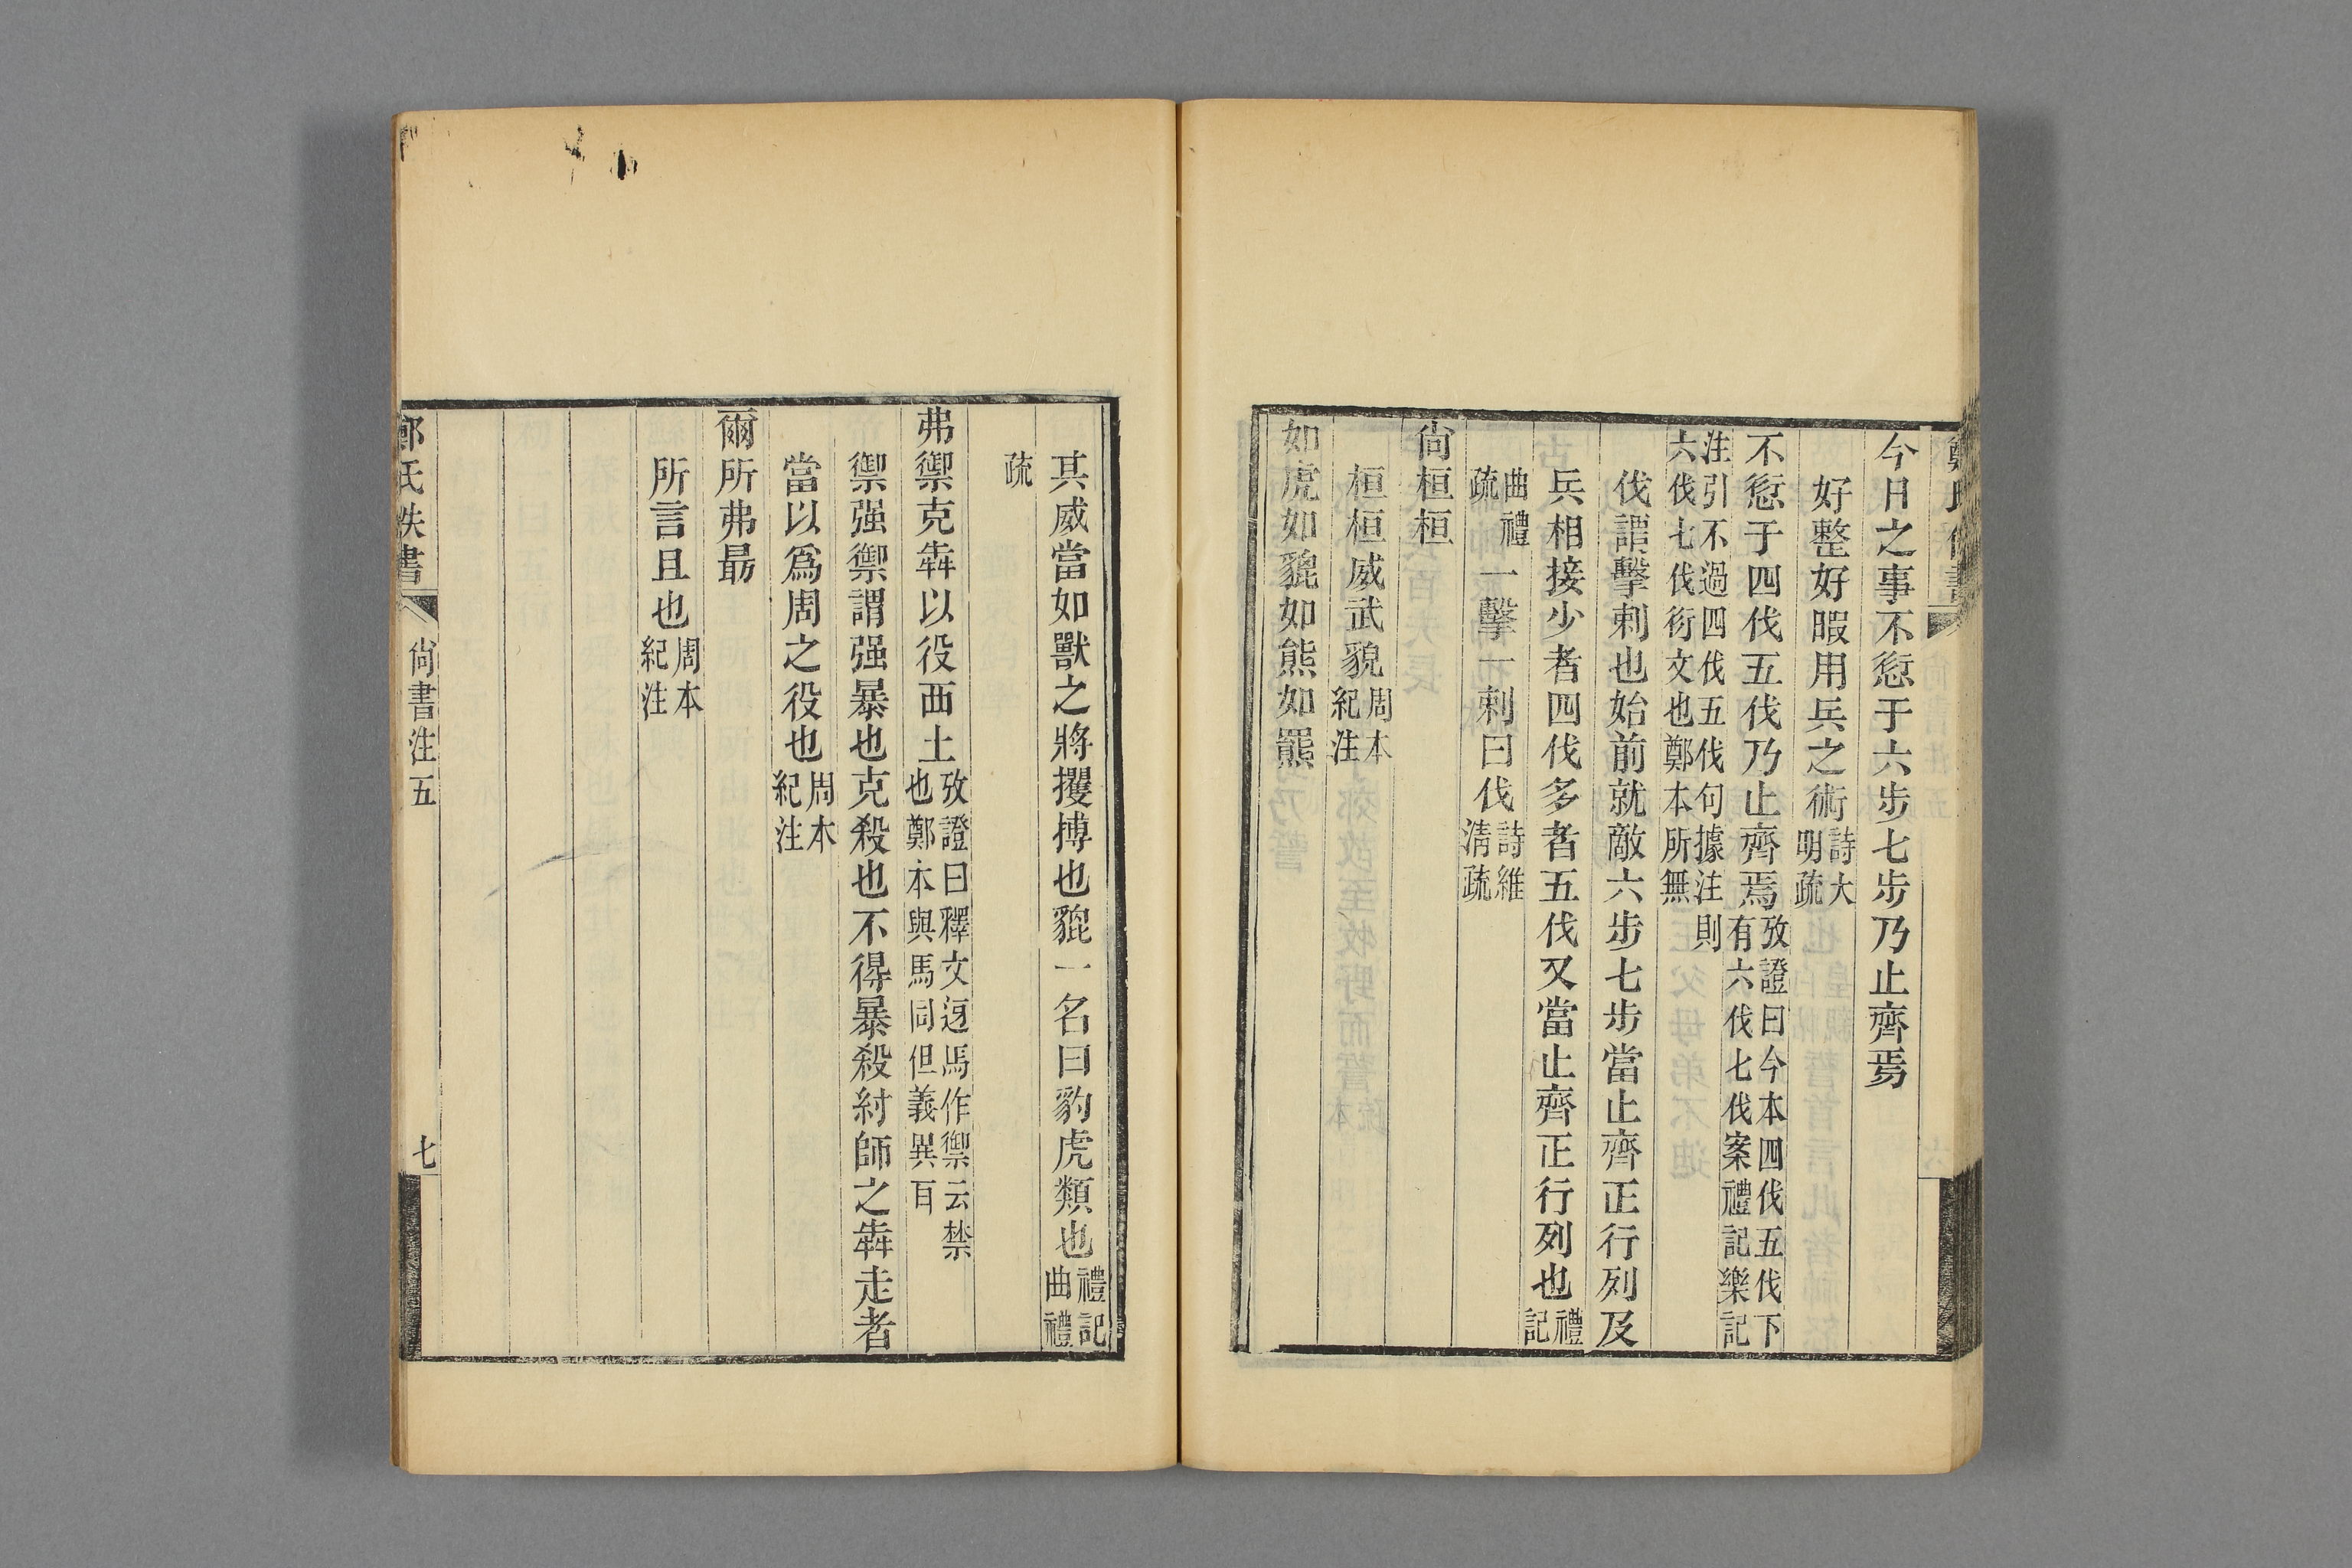 今日之事不愆于六步七步乃止齊焉
好整好暇用兵之術詩大明疏
不愆于四伐五伐乃止齊焉攷證曰今本四伐五伐下有六伐七伐案禮記樂記
注引不過四伐五伐句據注則六伐七伐衍文也鄭本所無
伐謂擊刺也始前就敵六步七步當止齊正行列及
兵相接少者四伐多者五伐又當止齊正行列也禮記
曲禮疏一擊一刺曰伐詩維淸疏
尙桓桓
桓桓威武貌周本紀注
如虎如貔如熊如羆
其威當如獸之將攫搏也貔一名曰豹虎類也禮記曲禮
疏
弗禦克犇以役西土攷證曰釋文迓馬作禦云禁也鄭本與馬同但義異耳
禦强禦謂强暴也克殺也不得暴殺紂師之犇走者
當以爲周之役也周本紀注
爾所弗勗
所言且也周本紀注
鄭氏佚書 尙書注五 七